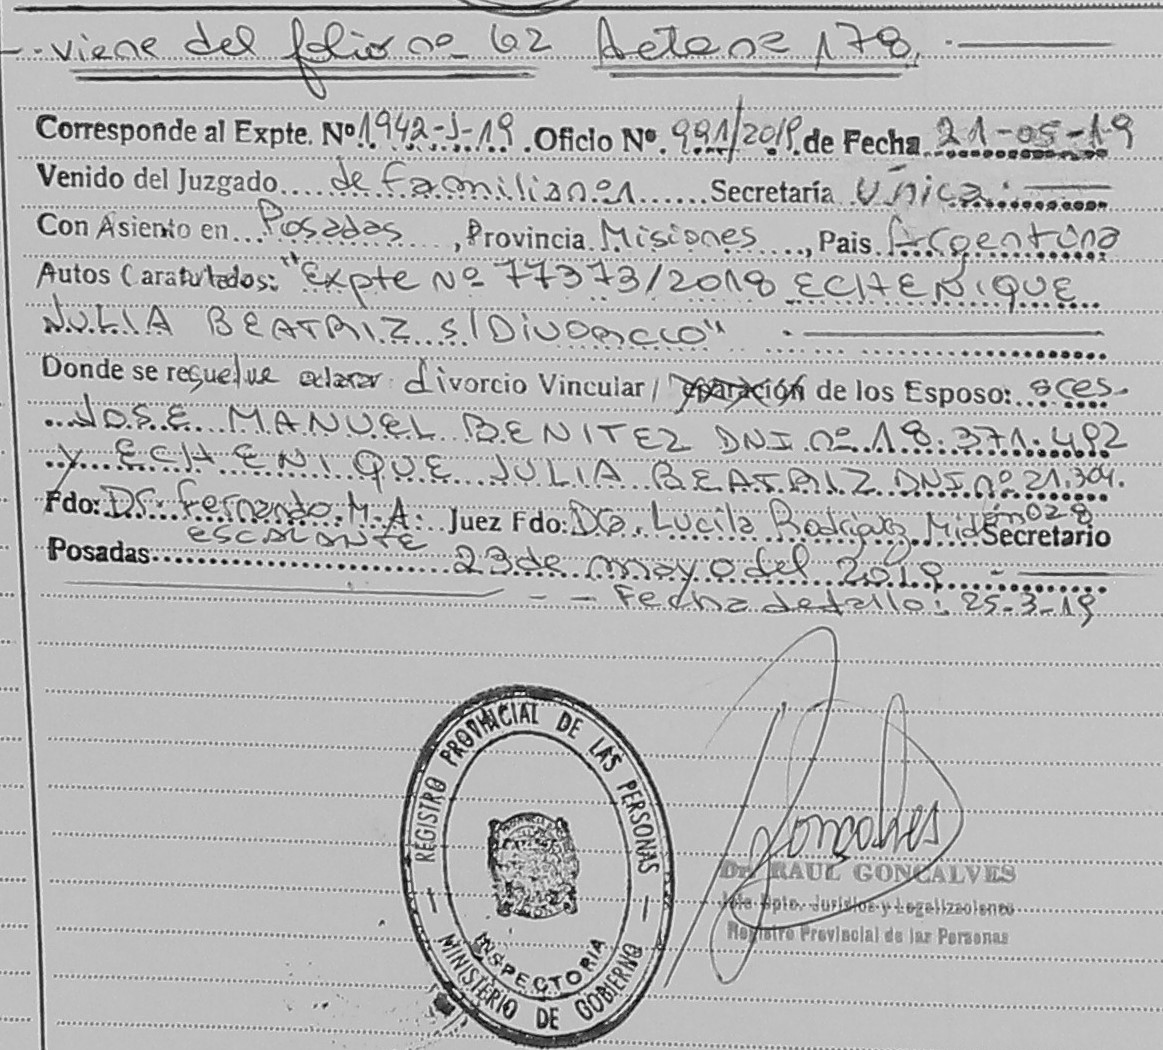 --viene del folio nº 62 Acta nº 178.-
Corresponde al Expte. Nº 1942-J-19 .Oficio Nº. 991/2019 de Fecha 21-05-19
Venido del Juzgado de familia nº1 Secretaría Única.
Con Asiento en Posadas, Provincia Misiones, Pais Argentina
Autos Caratulados: "Expte Nº 77373/2018 ECHENIQUE
JULIA BEATRIZ s/DIVORCIO"
Donde se resuelve aclarar divorcio Vincular / separación de los Esposo: aces-
JOSE MANUEL BENITEZ DNI nº 18.371.492
Y ECHENIQUE JULIA BEATRIZ DNI nº 21.304.
028
Fdo: Dr. Fernando M.A. Juez Fdo: Dra. Lucila Rodríguez Secretario
escalante
Posadas 23 de mayo del 2019
- - Fecha de fallo: 25-3-19
REGISTRO PROVINCIAL DE LAS PERSONAS
INSPECTORIA
MINISTERIO DE GOBIERNO
Goncalves
Dr. RAUL GONCALVES
Jefe Dpto. Juridico y Legalizaciones
Registro Provincial de las Personas